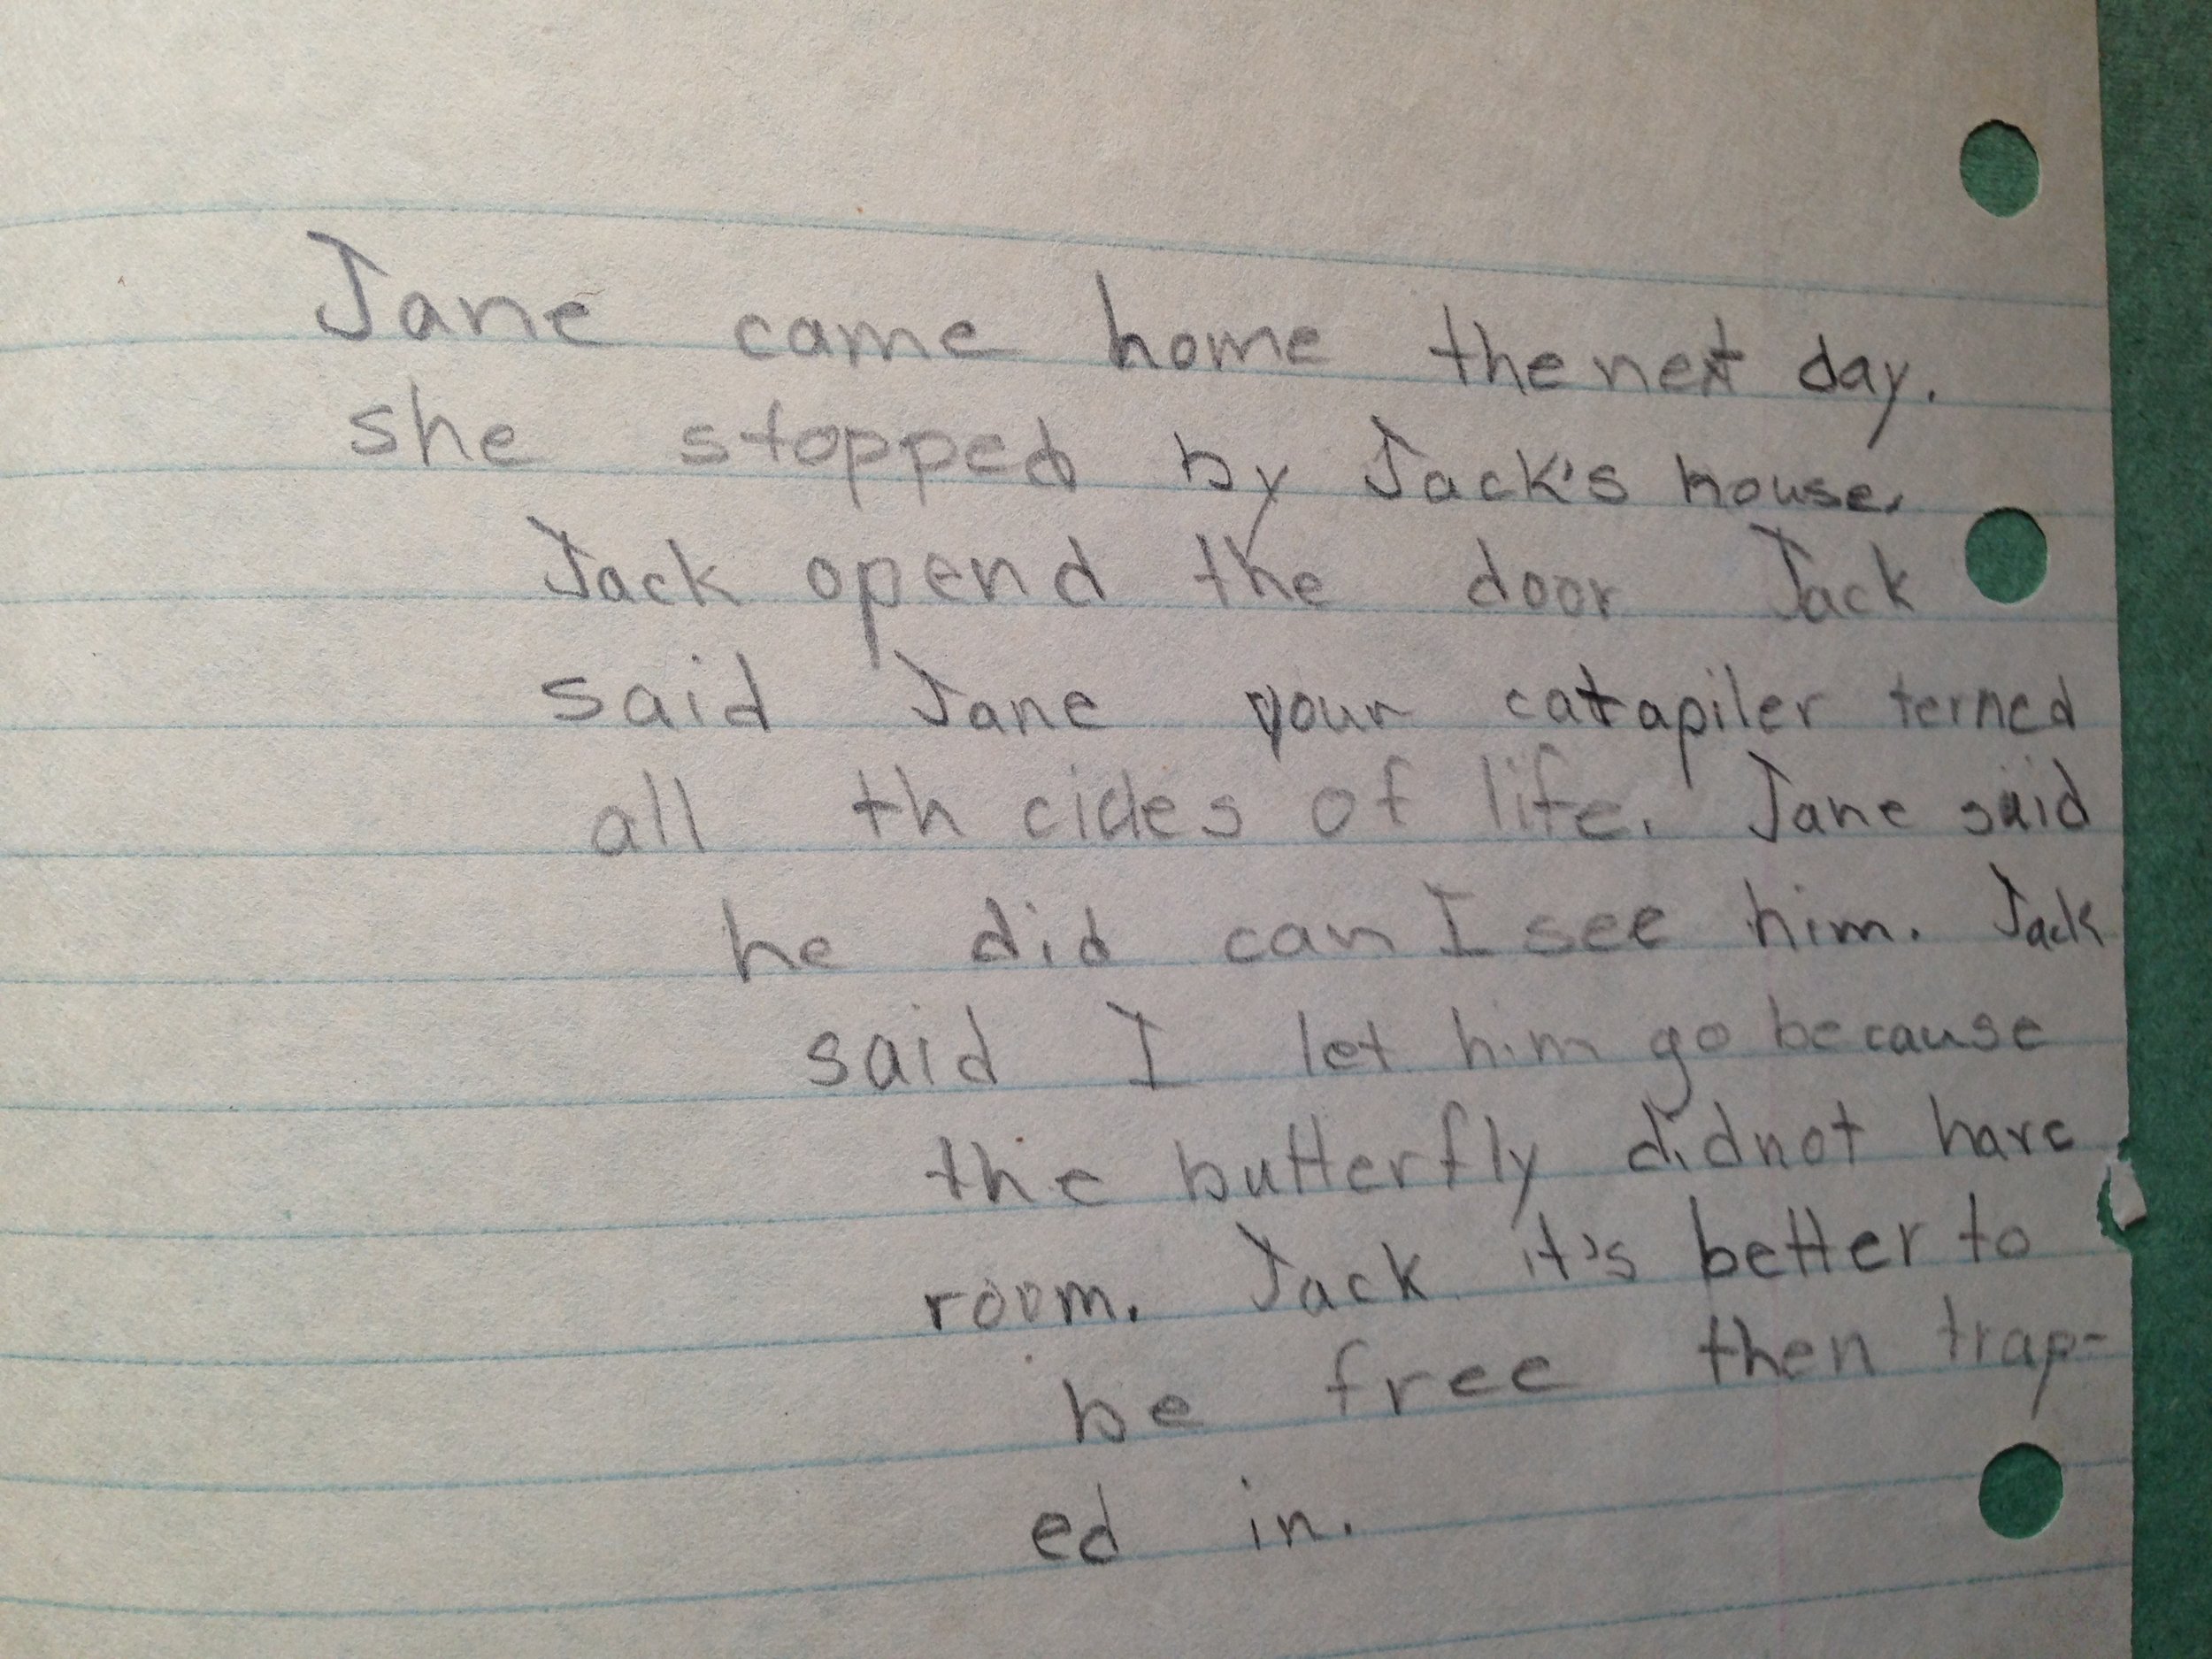 Jane came home the next day.
she stopped by Jack's house.
Jack opend the door Jack
said Jane your catapiler terned
all th cicles of life. Jane said
he did can I see him. Jack
said I let him go because
the butterfly did not have
room. Jack it's better to
be free then trap-
ed in.